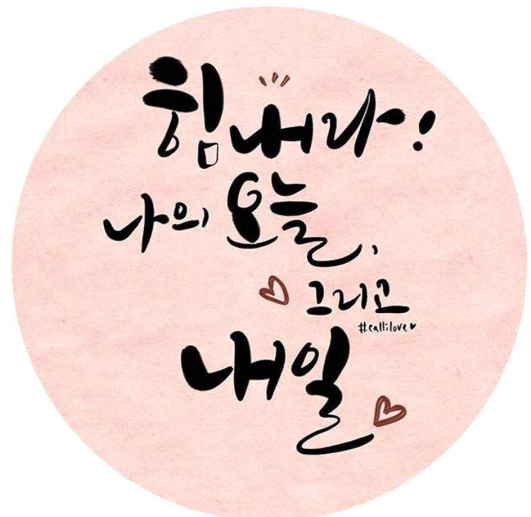 힘내라!
나의 오늘,
그리고
#callilove♥
내일